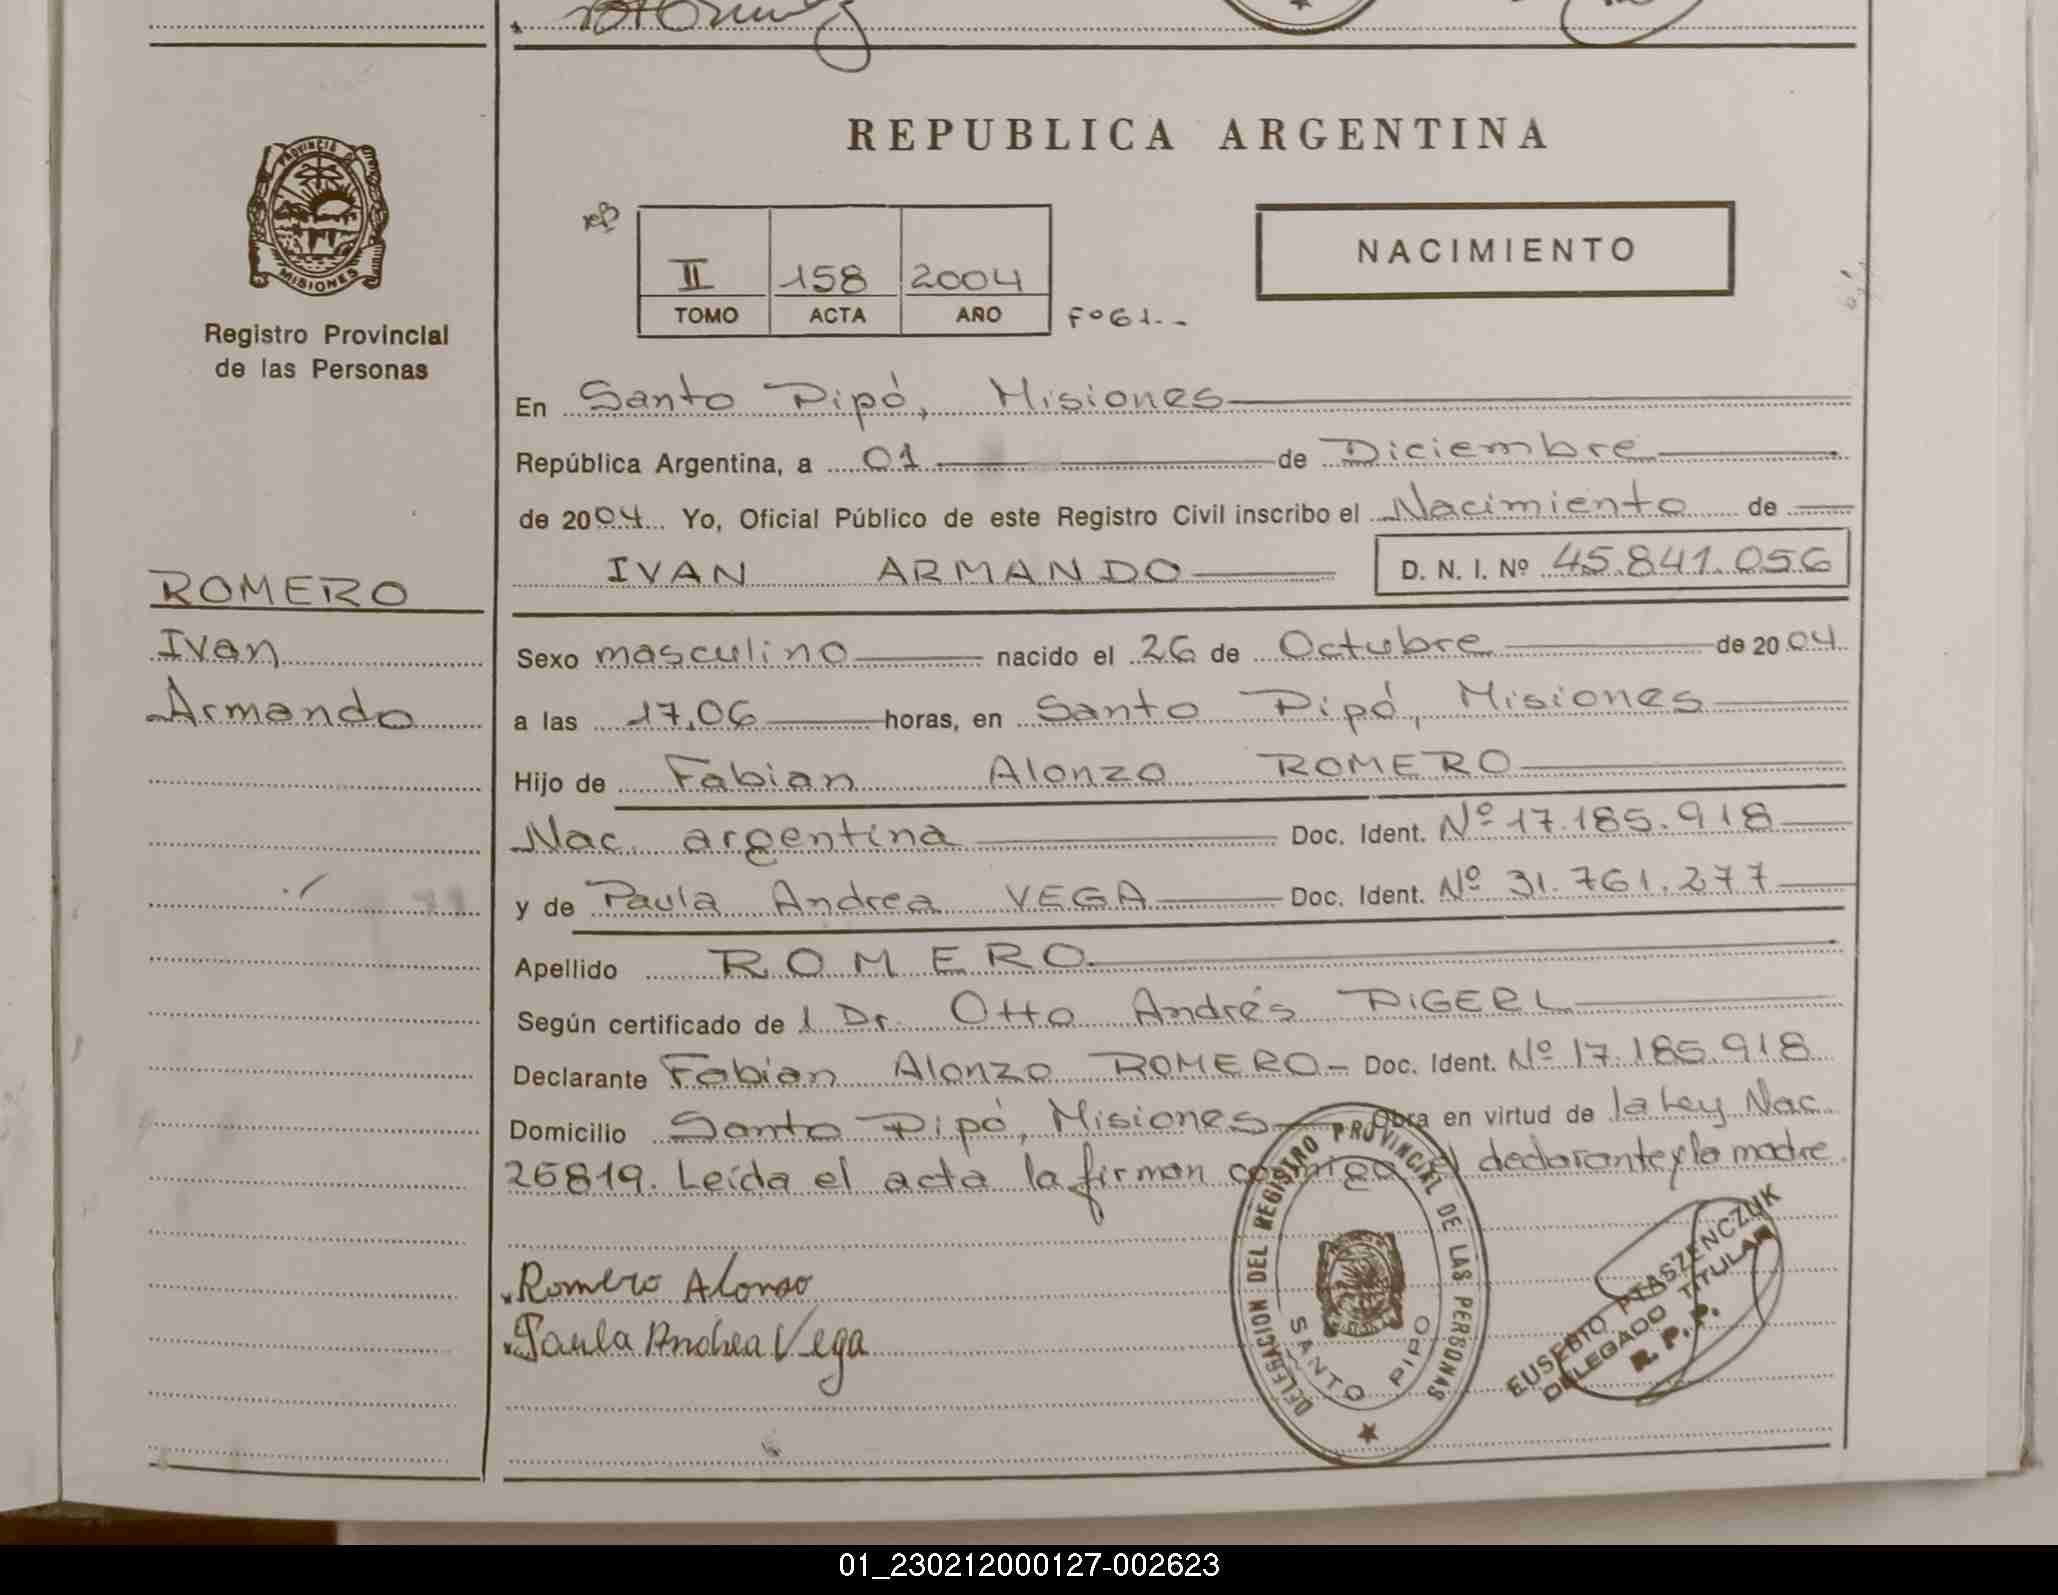 REPUBLICA ARGENTINA
PROVINCIA D MISIONES
Registro Provincial
de las Personas
II 158 2004
TOMO ACTA AÑO Fº61.-
NACIMIENTO
En Santo Pipó, Misiones
República Argentina, a 01 de Diciembre
de 2004 Yo, Oficial Público de este Registro Civil inscribo el Nacimiento de
IVAN ARMANDO D. N. I. Nº 45.841.056
ROMERO
Ivan
Armando
Sexo masculino nacido el 26 de Octubre de 2004
a las 17,06 horas, en Santo Pipó, Misiones
Hijo de Fabian Alonzo ROMERO
Nac. argentina Doc. Ident. Nº 17.185.918
y de Paula Andrea VEGA Doc. Ident. Nº 31.761.277
Apellido ROMERO
Según certificado de l Dr. Otto Andrés PIGERL
Declarante Fabian Alonzo ROMERO- Doc. Ident. Nº 17.185.918
Domicilio Santo Pipó, Misiones Obra en virtud de la Ley Nac.
25819. Leída el acta la firman conmigo el declarante y la madre.
Romero Alonso
Paula Andrea Vega
DELEGACION DEL REGISTRO PROVINCIAL DE LAS PERSONAS
SANTO PIPO
EUSEBIO PTASZENCZUK
DELEGADO TITULAR
R. P. P.
01_230212000127-002623